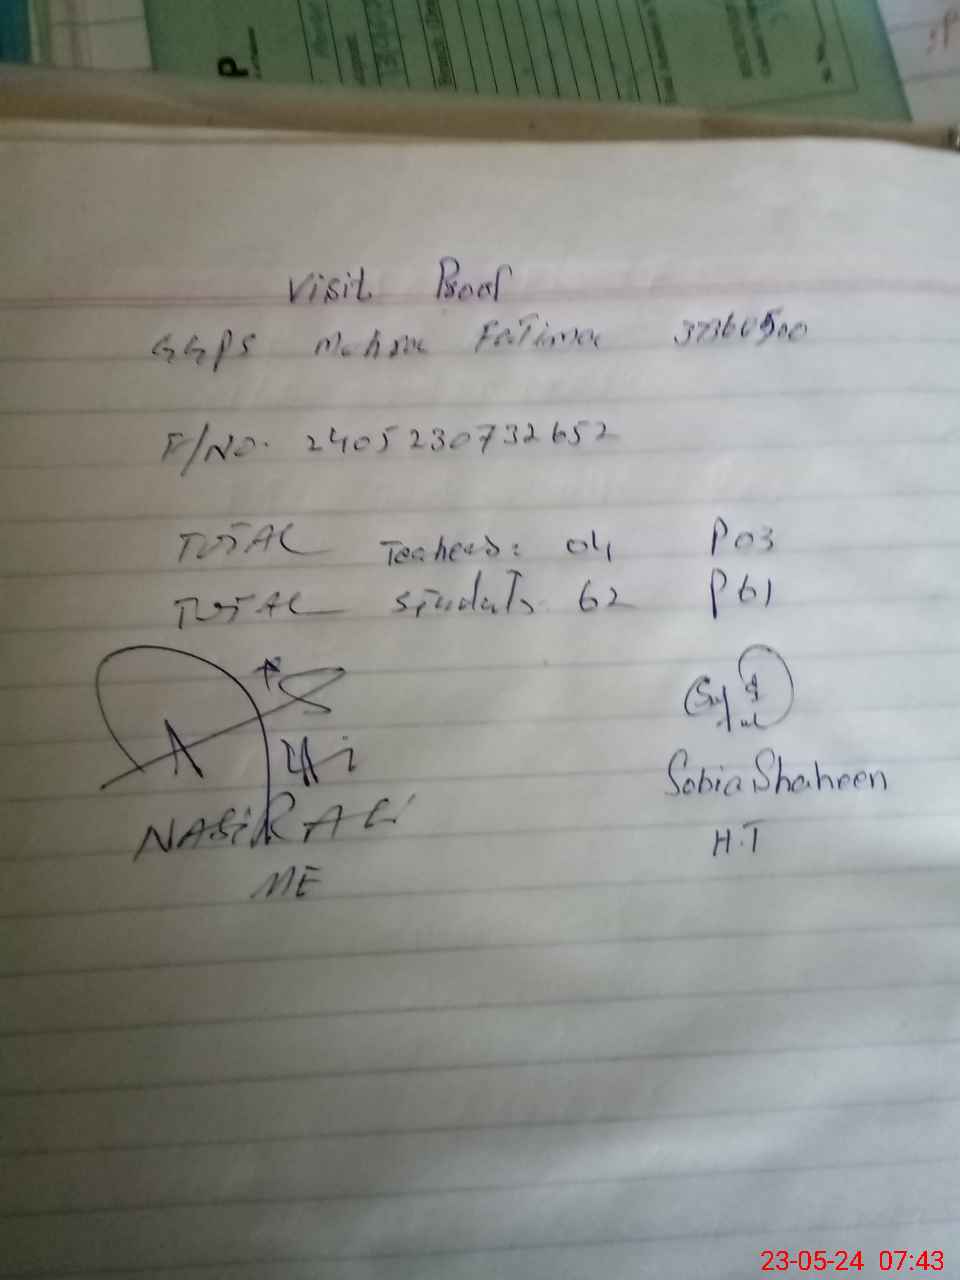 P
Visit Proof
GGPS Mohra Fatima 37360500
F/No. 2405230732652
TOTAL Teahers: 04 P 03
TOTAL Studats 62 P 61
NASiR ALi
Sobia Shaheen
ME
H.T
23-05-24 07:43